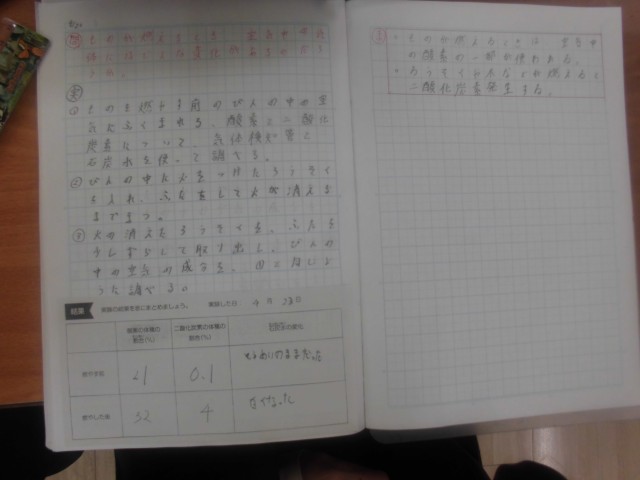 ものが燃えるとき、空気中の気
体にはどんな変化があるのだろ
うか。
実
① ものを燃やす前のびんの中の空
気にふくまれる、酸素と二酸化
炭素について、気体検知管と
石灰水を使って調べる。
② びんの中に火をつけたろうそく
を入れ、ふたをして火が消える
まで待つ。
③ 火の消えたろうそくを、ふたを
少しずらして取り出し、びんの
中の空気の成分を、同じように
調べる。
結果 実験の結果を表にまとめましょう。 実験した日 4月 23日
酸素の体積の割合(%) 二酸化炭素の体積の割合(%) 石灰水の変化
燃やす前 21 0.1
燃やした後 4
・ものが燃えるときは、空気中
の酸素の一部が使われる。
・ろうそくや木などが燃えると
二酸化炭素発生する。